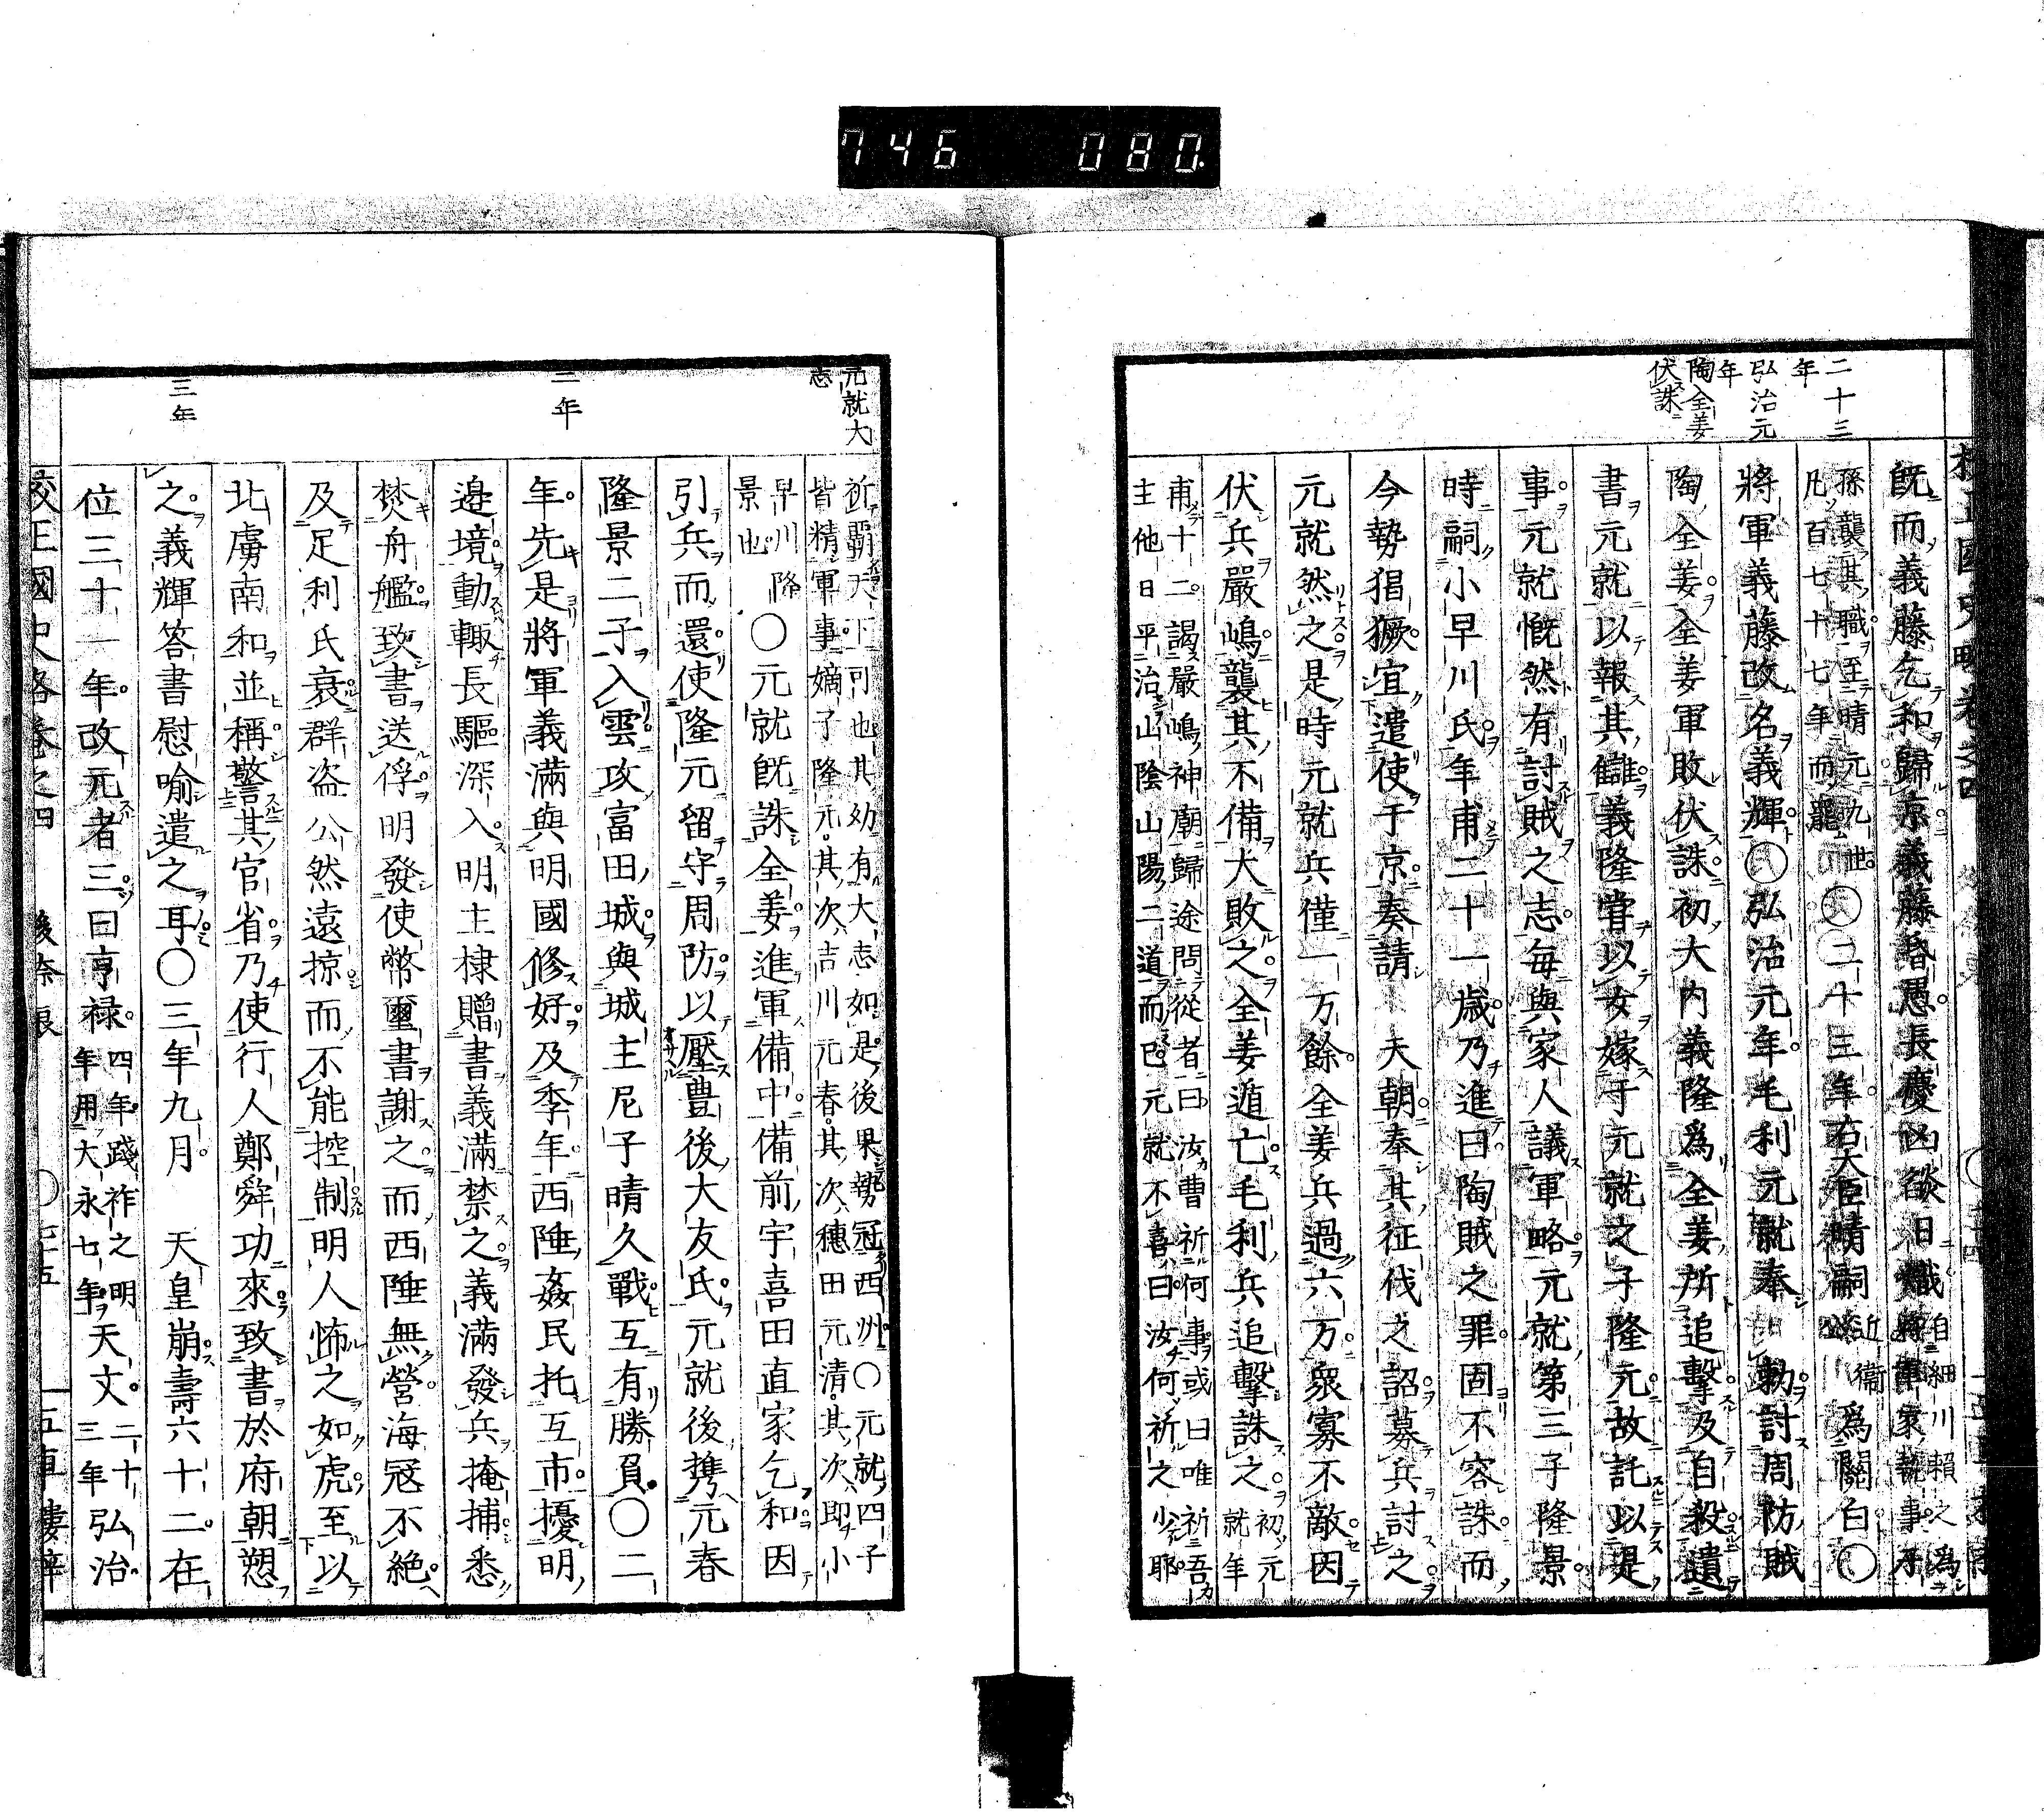 746 080
二十三年
弘治元年
陶全姜伏誅
既而義藤乞和歸京義藤昏愚長慶凶燄日熾自細川賴之爲
孫襲其職至晴元九世凡百七十七年而○二十三年右大臣晴嗣近衞爲關白○
將軍義藤改名義輝○弘治元年毛利元就奉勅討周防賊
陶全姜全姜軍敗伏誅初大內義隆爲全姜所追擊及自殺遺
書元就以報其讎義隆嘗以女嫁于元就之子隆元故託以是
事元就慨然有討賊之志每與家人議軍略元就第三子隆景
時嗣小早川氏年甫二十一歲乃進曰陶賊之罪固不容誅而
今勢猖獗宜遣使于京奏請 天朝奉其征伐之詔募兵討之
元就然之是時元就兵僅一万餘全姜兵過六万衆寡不敵因
伏兵嚴嶋襲其不備大敗之全姜遁亡毛利兵追擊誅之初元就年
甫十二謁嚴嶋神廟歸途問從者曰汝曹祈何事或曰唯祈吾
主他日平治山陰山陽二道而已元就不喜曰汝何祈之少耶
元就大志
二年
三年
祈霸天下可也其幼有大志如是後果勢冠西州○元就四子
皆精軍事嫡子隆元其次吉川元春其次穗田元清其次即小
早川隆景也○元就既誅全姜進軍備中備前宇喜田直家乞和因
引兵而還使隆元留守周防以壓豊後大友氏元就後携元春
隆景二子入雲攻富田城與城主尼子晴久戰互有勝負○二
年先是將軍義滿與明國修好及季年西陲姦民托互市擾明
邉境動輙長驅深入明主棣贈書義滿禁之義滿發兵掩捕悉
焚舟艦致書送俘明發使幣璽書謝之而西陲無營海寇不絶
及足利氏衰群盗公然遠掠而不能控制明人怖之如虎至以
北虜南和並稱警其官省乃使行人鄭舜功來致書於府朝愬
之義輝答書慰喩遣之耳○三年九月 天皇崩壽六十二在
位三十一年改元者三曰亨禄四年踐祚之明年用大永七年天文二十三年弘治
校正國史略卷之四 後奈良 ○七十五 五車樓梓